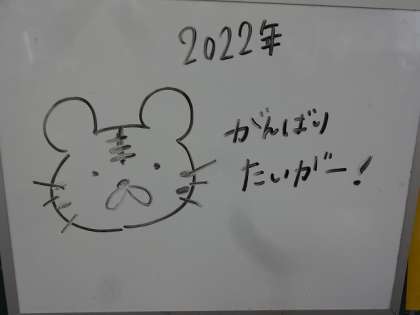 2022年
がんばり
たいがー!